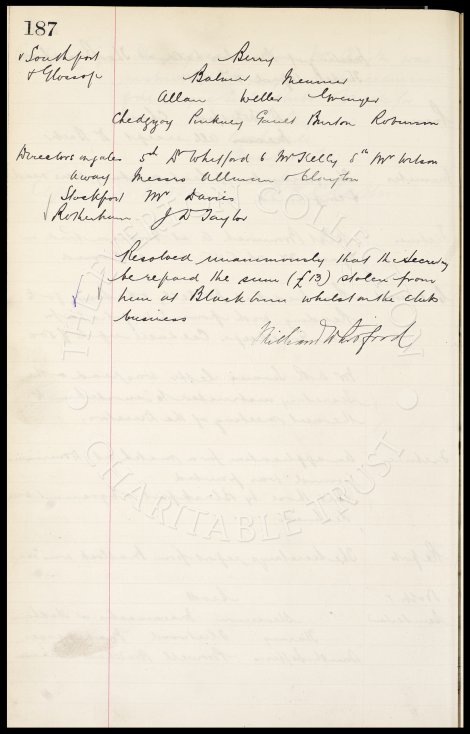 187
& Southport
& Glossop
Berry
Balmer Meunier
Allan Weller Grenyer
Chedgzoy Pinkney Gault Burton Robinson
Directors on gates 5d Dr Whitford 6 Mr Kelly 8th Mr Wilson
away Messrs Allinson & Clayton
Stockport Mr Davies
Rotherham J D Taylor
Resolved unanimously that the Secretary
be repaid the sum (£13) stolen from
him at Blackburn whilst on the clubs
business
William Whitford
THE COLLECTION
CHARITABLE TRUST